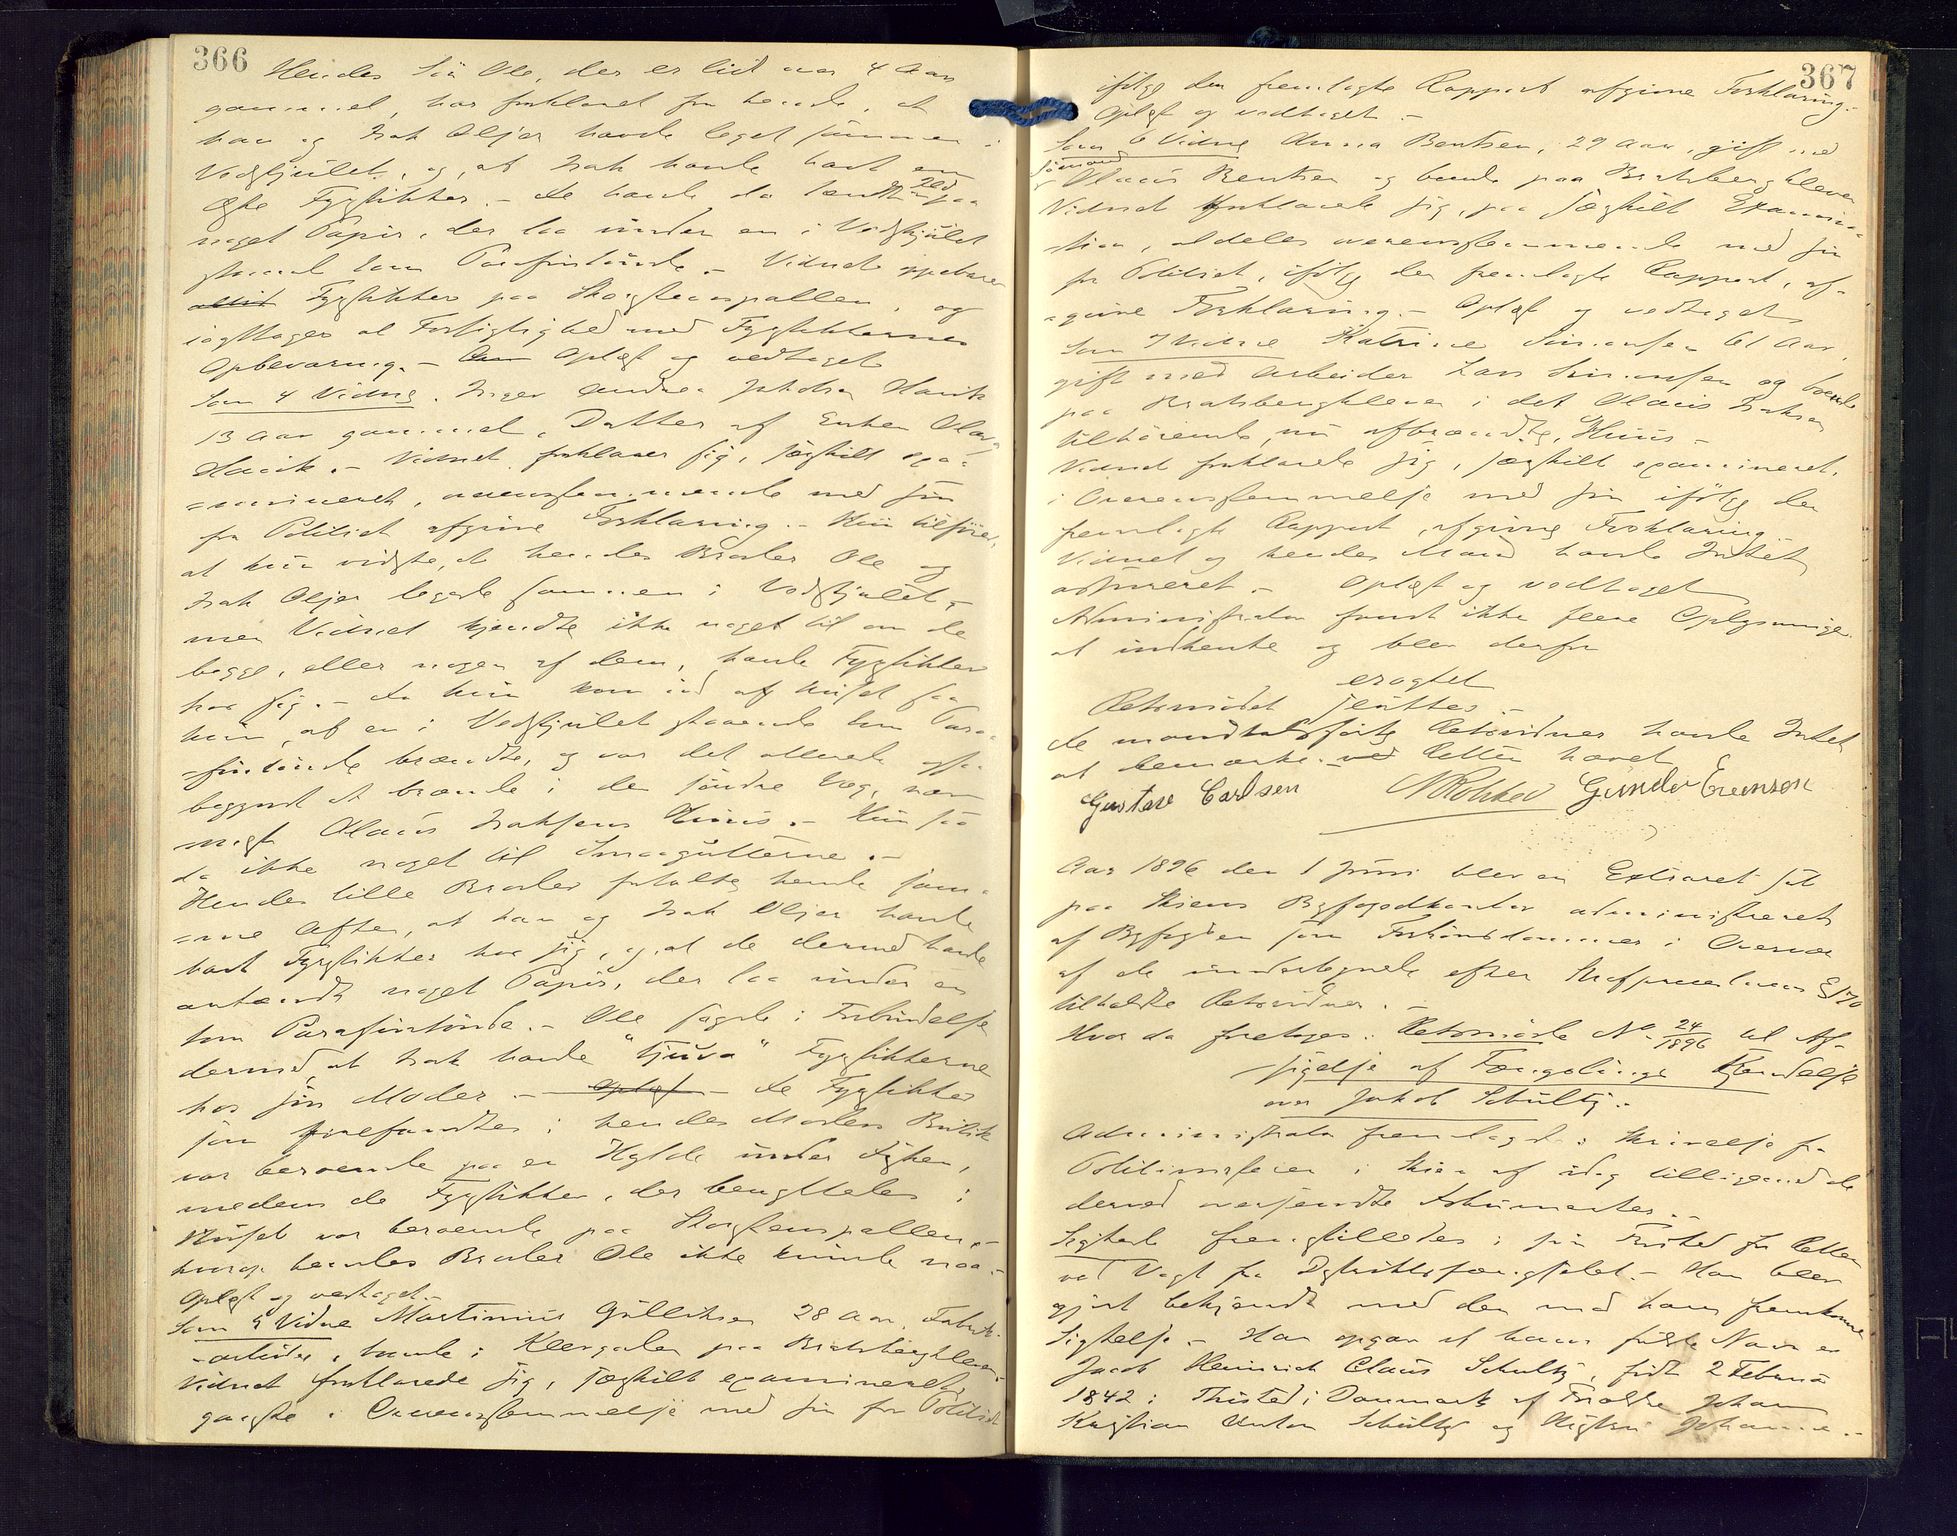 366
Hendes Søn Ole, der er lidt over 4 Aar
gammel, har forklaret for hende, at
han og Isak Oljer havde leget sammen i
Vedskjulet, og, at Isak havde havt en
Æske Fyrstikker. – De havde da tændt Ild paa
noget Papir, der laa under en i Vedskjulet
staaende tom Parafintønde. – Vidnet opbevarer
altid Fyrstikker paa Skorstenspallen, og
iagttages al Forsigtighed med Fyrstikkernes
Opbevaring. – Oplæst og vedtaget
Som 4 Vidne. Inger Andrea Jakobsen Havik
13 Aar gammel, Datter af Enken Olava
Havik. – Vidnet forklarer sig, særskilt exa-
-mineret, overensstemmende med sin
for Politiet afgivne Forklaring. – Hun tilføier,
at hun vidste, at hendes Broder Ole og
Isak Oljer legede sammen i Vedskjulet,
men Vidnet kjendte ikke noget til om de
begge, eller nogen af dem, havde Fyrstikker
hos sig. – Da hun kom ud af Huset saa
hun, at en i Vedskjulet staaende tom Para-
-fintønde brændte, og var det allerede ogsaa
begyndt at brænde i den søndre Væg, nær-
mest Olaus Isaksens Huus. – Hun saa
da ikke noget til Smaagutterne. –
Hendes lille Broder fortalte hende sam-
-me Aften, at han og Isak Oljer havde
havt Fyrstikker hos sig, og, at de dermed havde
antændt noget Papir, der laa under en
tom Parafintønde. – Ole sagde i Forbindelse
dermed, at Isak havde "tjuva" Fyrstikkerne
hos sin Moder. – Oplæst – De Fyrstikker
som forefandtes i hendes Moders Butik
var beroende paa en Hylde under Disken,
medens de Fyrstikker, der benyttedes i
Huset var beroende paa Skorstenspallen, –
hvorpaa hendes Broder Ole ikke kunde naa. –
Oplæst og vedtaget. –
Som 5 Vidne Martinius Gulliksen 28 Aar, Fabrik-
-arbeider, boende i Kleivgaden paa Bratsbergkleven.
Vidnet forklarede sig, særskilt examineret,
ganske i Overensstemmelse med sin for Politiet
367
ifølge den fremlagte Rapport afgivne Forklaring –
Oplæst og vedtaget. –
Som 6 Vidne Anna Bentsen, 29 Aar, gift med
Sømand Olaus Bentsen og boende paa Bratsbergkleven
Vidnet forklarede sig, paa særskilt Examina-
tion, aldeles overensstemmende med sin
for Politiet, ifølge den fremlagte Rapport, af-
-givne Forklaring. – Oplæst og vedtaget
Som 7 Vidne Katrine Simonsen 61 Aar,
gift med Arbeider Lars Simonsen og boende
paa Bratsbergkleven i det Olaus Isaksen
tilhørende, nu afbrændte, Huus –
Vidnet forklarede sig, særskilt examineret,
i Overensstemmelse med sin ifølge den
fremlagte Rapport, afgivne Forklaring
Vidnet og hendes Mand havde Intet
assureret. – Oplæst og vedtaget
Administrator fandt ikke flere Oplysninger
at indhente og blev derfor
eragtet
Retsmødet sluttes. –
De mandtalsførte Retsvidner havde Intet
at bemærke. – Retten hævet
Gustav Carlsen Gunder Evensen
Aar 1896 den 1 Juni blev en Extraret sat
paa Skiens Byfogedkontor administreret
af Byfogden som Forhørsdommer i Overvær
af de undertegnede efter Straffeproceslovens § 170
tilkaldte Retsvidner. –
Hvor da foretoges: Retsmøde No 24/1896 til Af-
sigelse af Fængslings Kjendelse
over Jakob Schultz. –
Administrator fremlagde: Skrivelse fra
Politimesteren i Skien af idag tilligemed de
derved oversendte Dokumenter. –
Sigtede fremstilledes i sin Frihed for Retten
ved Vagt fra Distriktsfængslet. – Han blev
gjort bekjendt med den mod ham fremkomne
Sigtelse. – Han opgav at hans fulde Navn er
Jacob Heinrich Claus Schultz, født 2 Februar
1842 i Thisted i Danmark af Forældre Johan
Kristian Anton Schultz og Hustru Johanne –